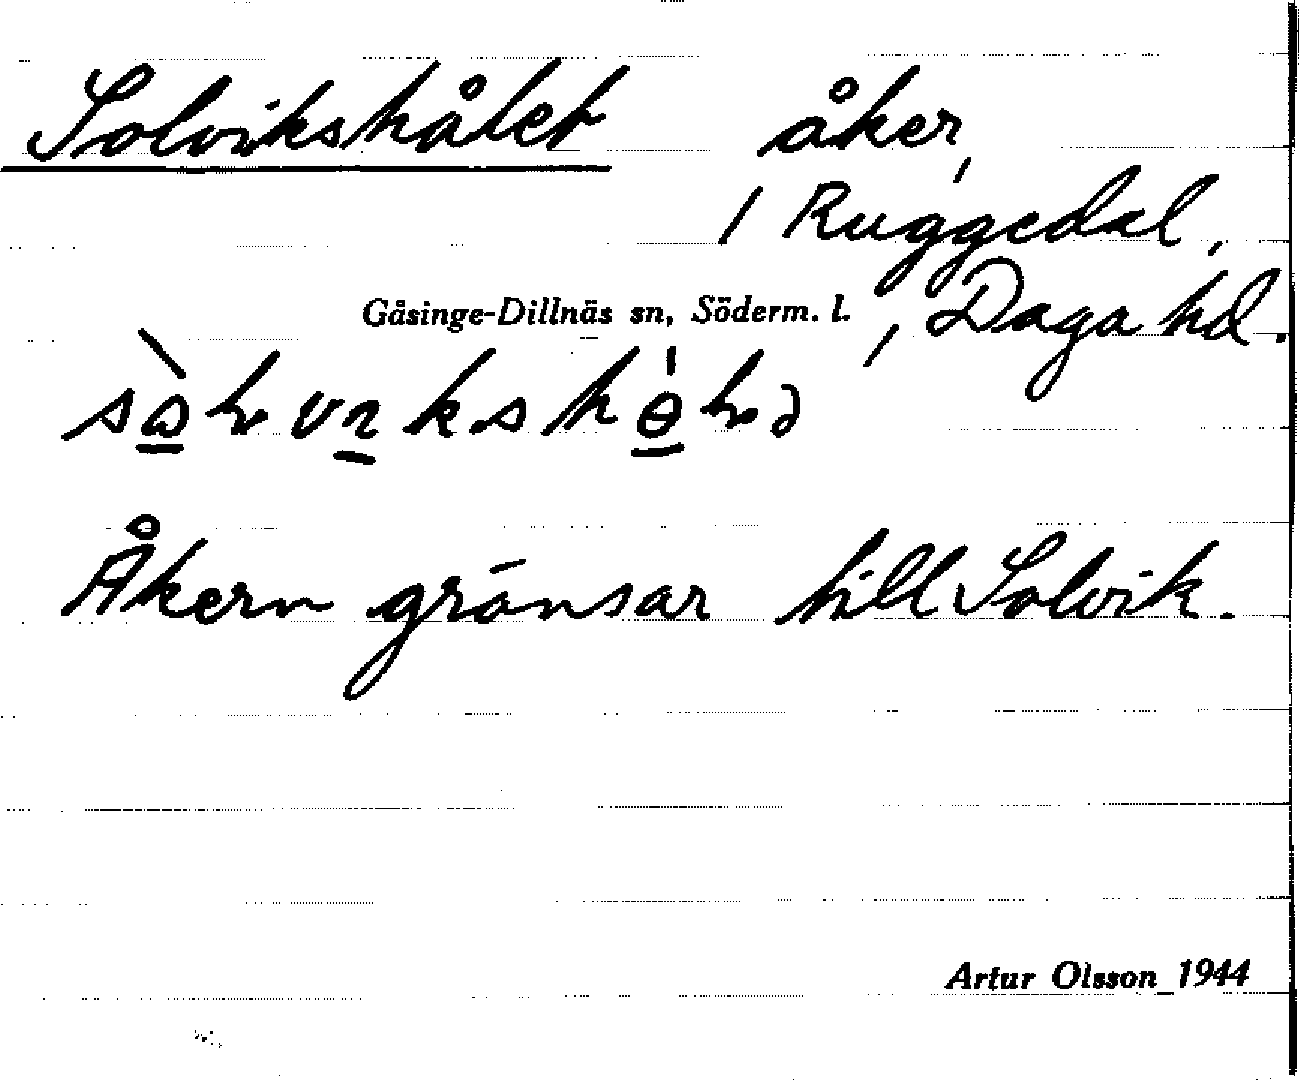 Solvikshålet åker,
/ Ruggedal,
Gåsinge-Dillnäs sn, Söderm. l. , Daga hd.
Åkern gränsar till Solvik.
Artur Olsson 1944